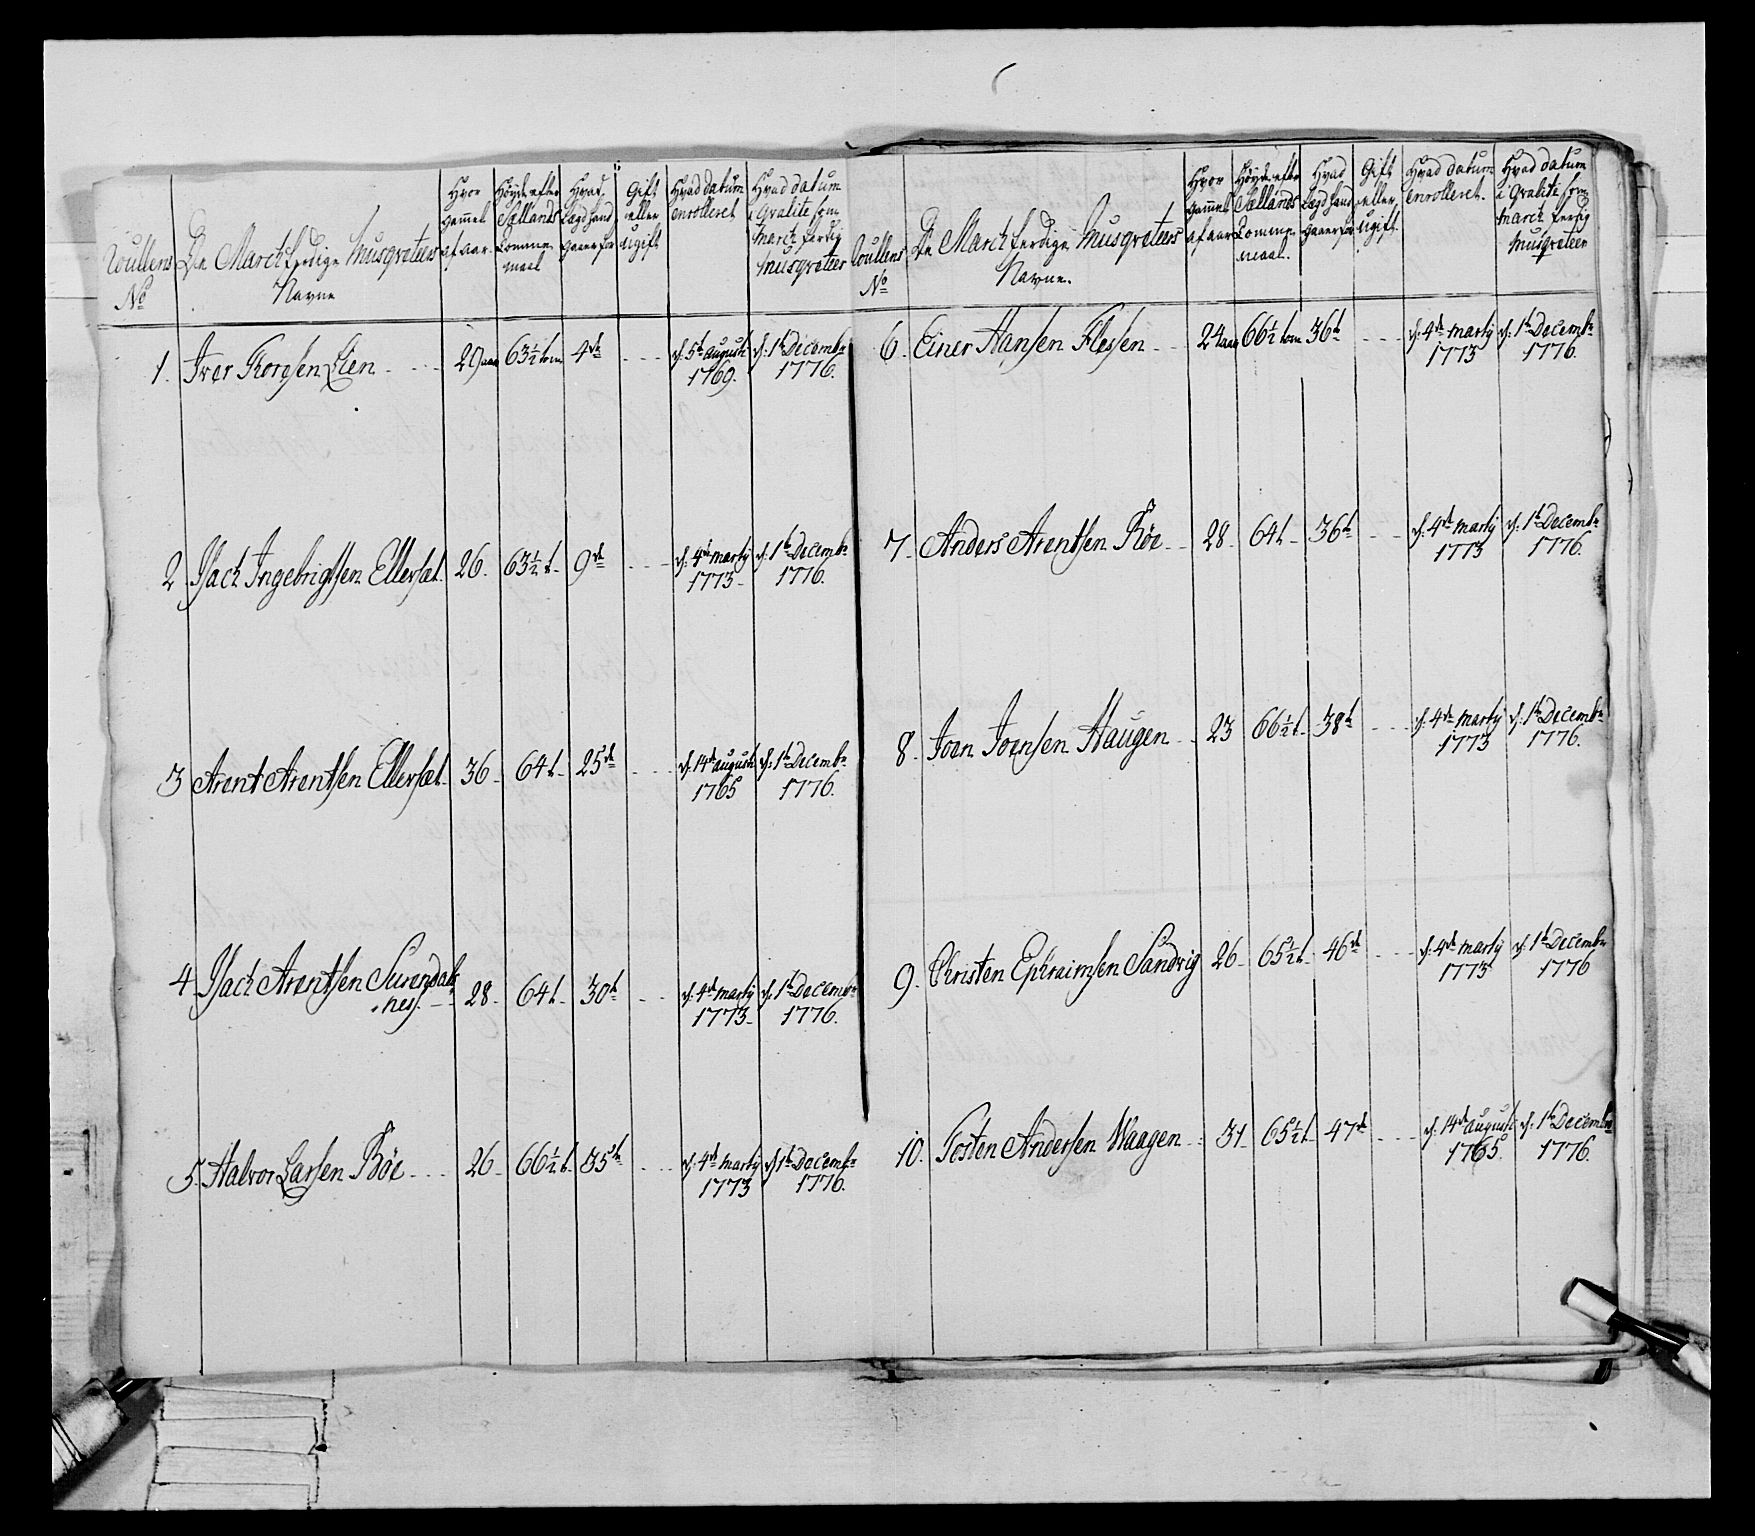 Roullens
No
De March ferdige Musqveteers
Navne
Hvor
gammel
af aar.
Höyde efter
Sællands
Tomme
maal
Hvad
Lægd hand
gaaer for
Gift
eller
ugift
Hvad datum
enrolleret
Hvad datum
i Qvalite som
March ferdig
Musqveteer
1. Iver Toresen Lien 29 aar 63½ tom 4de d. 5te august 1769. d. 1te Decembr 1776.
2 Isach Ingebrigtsen Ellersæt 26. 63½ t. 9de d. 4de marty 1773 d. 1te Decembr 1776.
3 Arent Arentsen Ellersæt 36 64 t. 25de d. 14de august 1765 d. 1te Decembr 1776.
4 Isach Arentsen Surendals
nes. 28. 64 t. 30te d. 4de marty 1773 d. 1te Decembr 1776.
5. Halvor Larsen Böe 26 66½ t. 35te d. 4de marty 1773 d. 1te Decembr 1776.
Roullens
No
De March ferdige Musqveteers
Navne.
Hvor
gammel
af aar
Höyde efter
Sællands
Tomme
maal.
Hvad
Lægd hand
gaaer for
Gift
eller
ugift.
Hvad datum
enrolleret.
Hvad datum
i Qvalite som
March ferdig
Musqveteer
6. Einer Hansen Flessen 24 aar 66½ tom 36te d. 4de marty 1773 d. 1te Decembr 1776.
7. Anders Arentsen Röe 28 64 t. 36te d. 4de marty 1773 d. 1te Decembr 1776.
8. Joen Joensen Haugen 23 66½ t. 38te d. 4de marty 1773 d. 1te Decembr 1776.
9. Christen Ephraimsen Sandvig 26 65½ t. 46de d. 4de marty 1773 d. 1te Decembr 1776
10. Tosten Andersen Waagen 31 65½ t. 47de d. 14de august 1765. d. 1te Decembr 1776.